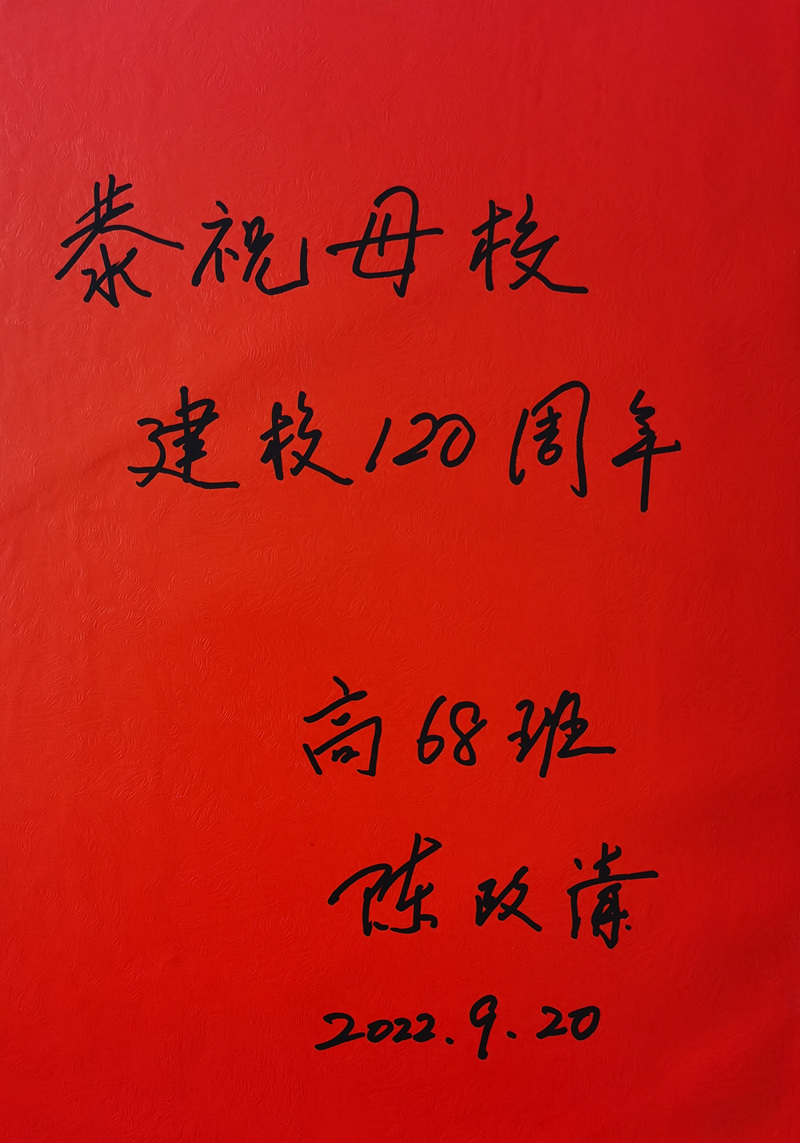 恭祝母校
建校120周年
高68班
陈政
2022.9.20